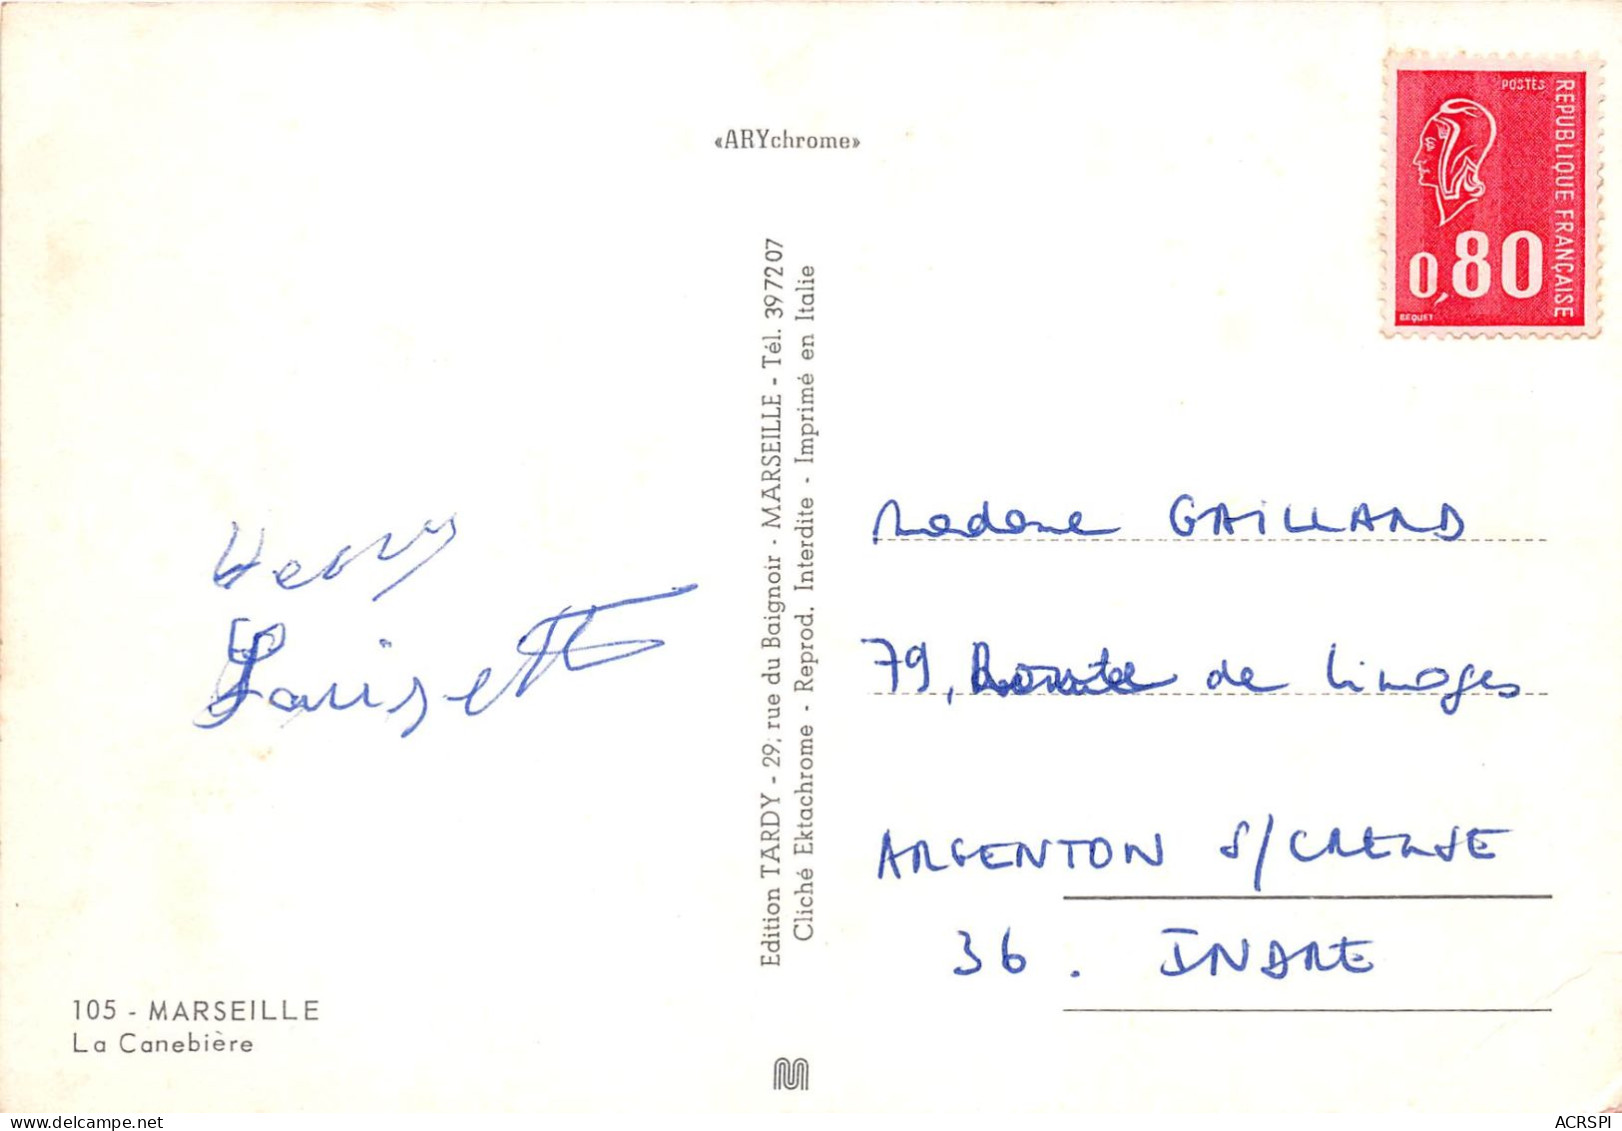 «ARYchrome»
POSTES
REPUBLIQUE FRANÇAISE
0,80
BEQUET
Edition TARDY - 29, rue du Baignoir - MARSEILLE - Tél. 397207
Cliché Ektachrome - Reprod. Interdite - Imprimé en Italie
Madame GAILLARD
79, Route de Limoges
ARGENTON S/CREUSE
36. INDRE
105 - MARSEILLE
La Canebière
ACRSPI